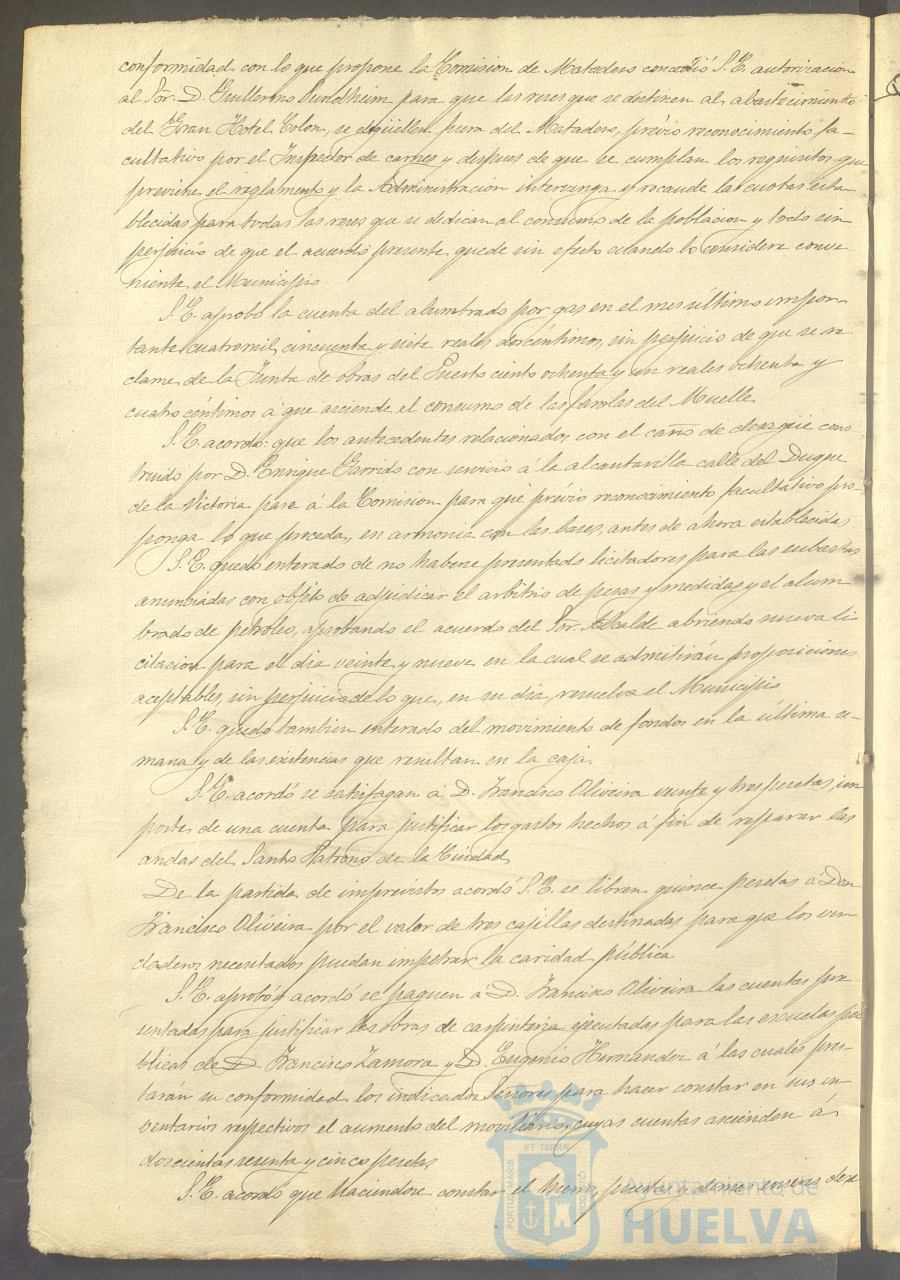 conformidad con lo que propone la Comision de Matadero concedió S.E. autorizacion
al Sor. D. Guillermo Sundheim para que las reses que se destinen al abastecimiento
del Gran Hotel Colon, se degüellen fuera del Matadero, prévio reconocimiento fa-
cultativo por el Inspector de carnes y despues de que se cumplan los requisitos que
previene el reglamento y la Administración intervenga y recaude las cuotas esta
blecidas para todas las reses que se dedican al consumo de la poblacion y todo sin
perjuicio de que el acuerdo presente, quede sin efecto cuando lo considere conve
niente el Municipio
S.E. aprobó la cuenta del alumbrado por gas en el mes último impor-
tante cuatro mil cincuenta y siete reales dos céntimos, sin perjuicio de que se re
clame de la Junta de obras del Puerto ciento ochenta y un reales ochenta y
cuatro céntimos á que asciende el consumo de las farolas del Muelle.
S.E. acordó: que los antecedentes relacionados con el caño de desagüe cons
truido por D. Enrique Garrido con servicio á la alcantarilla calle del Duque
de la Victoria pase á la Comision para que prévio reconocimiento facultativo pro-
ponga lo que proceda, en armonia con las bases, antes de ahora establecidas
S.E. quedó enterado de no haberse presentado licitadores para las subastas
anunciadas con objeto de adjudicar el arbitrio de pesas y medidas y el alum-
brado de petroleo, aprobando el acuerdo del Sor. Alcalde abriendo nueva li
citacion para el dia veinte y nueve en la cual se admitirán proposiciones
aceptables, sin perjuicio de lo que, en su dia, resuelva el Municipio
S.E. quedó tambien enterado del movimiento de fondos en la última se-
mana y de las existencias que resultan en la caja.
S.E. acordó se satisfagan á D. Francisco Oliveira veinte y tres pesetas, im
porte de una cuenta para justificar los gastos hechos á fin de reparar las
andas del Santo Patrono de la Ciudad
De la partida de imprevistos acordó S.E. se libren quince pesetas á Don
Francisco Oliveira por el valor de tres cajillas destinadas para que los ver
daderos necesitados puedan impetrar la caridad pública
S.E. aprobó y acordó se paguen á D. Francisco Oliveira las cuentas pre
sentadas para justificar las obras de carpinteria ejecutadas para las escuelas pú
blicas de D. Francisco Zamora y D. Eugenio Hernandez á las cuales pres-
tarán su conformidad los indicados Señores para hacer constar en sus in
ventarios respectivos el aumento del moviliario, cuyas cuentas ascienden á
doscientas sesenta y cinco pesetas
S.E. acordó que haciendose constar el buen, y demas de
PORTUS MARIS
ET TERRAE
CUSTODIA
Ayuntamiento de
HUELVA